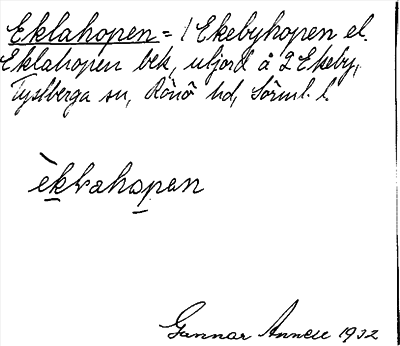 Eklahopen = 1 Ekebyhopen el.
Eklahopen bek, utjord å 2 Ekeby,
Tystberga sn, Rönö hd, Sörml. l.
èkḷahopen
Gunnar Annell 1932